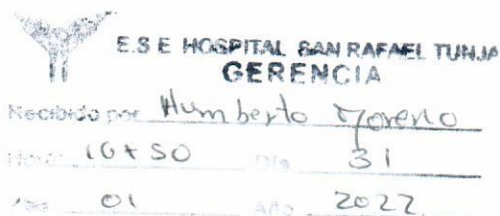 E.S.E HOSPITAL SAN RAFAEL TUNJA
GERENCIA
Recibido por Humberto Moreno
Hora: 16+50 Día 31
Mes 01 Año 2022